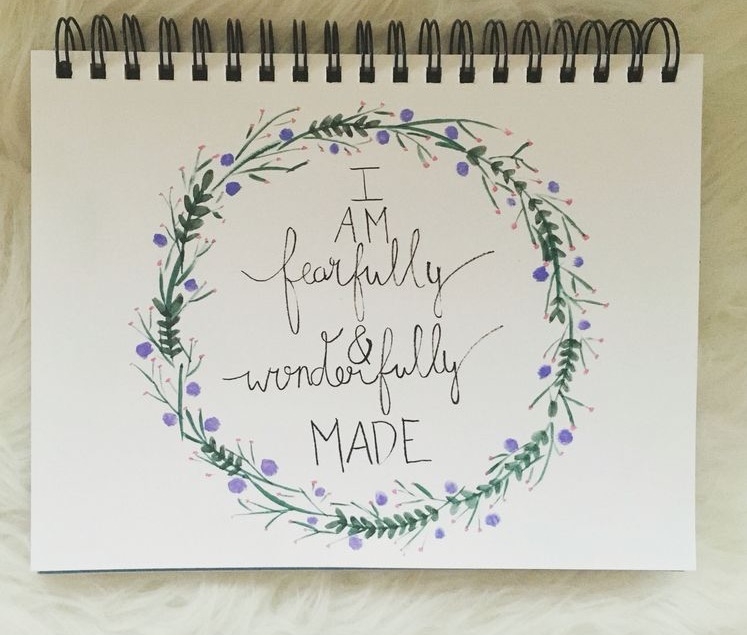 I
AM
fearfully
&
wonderfully
MADE